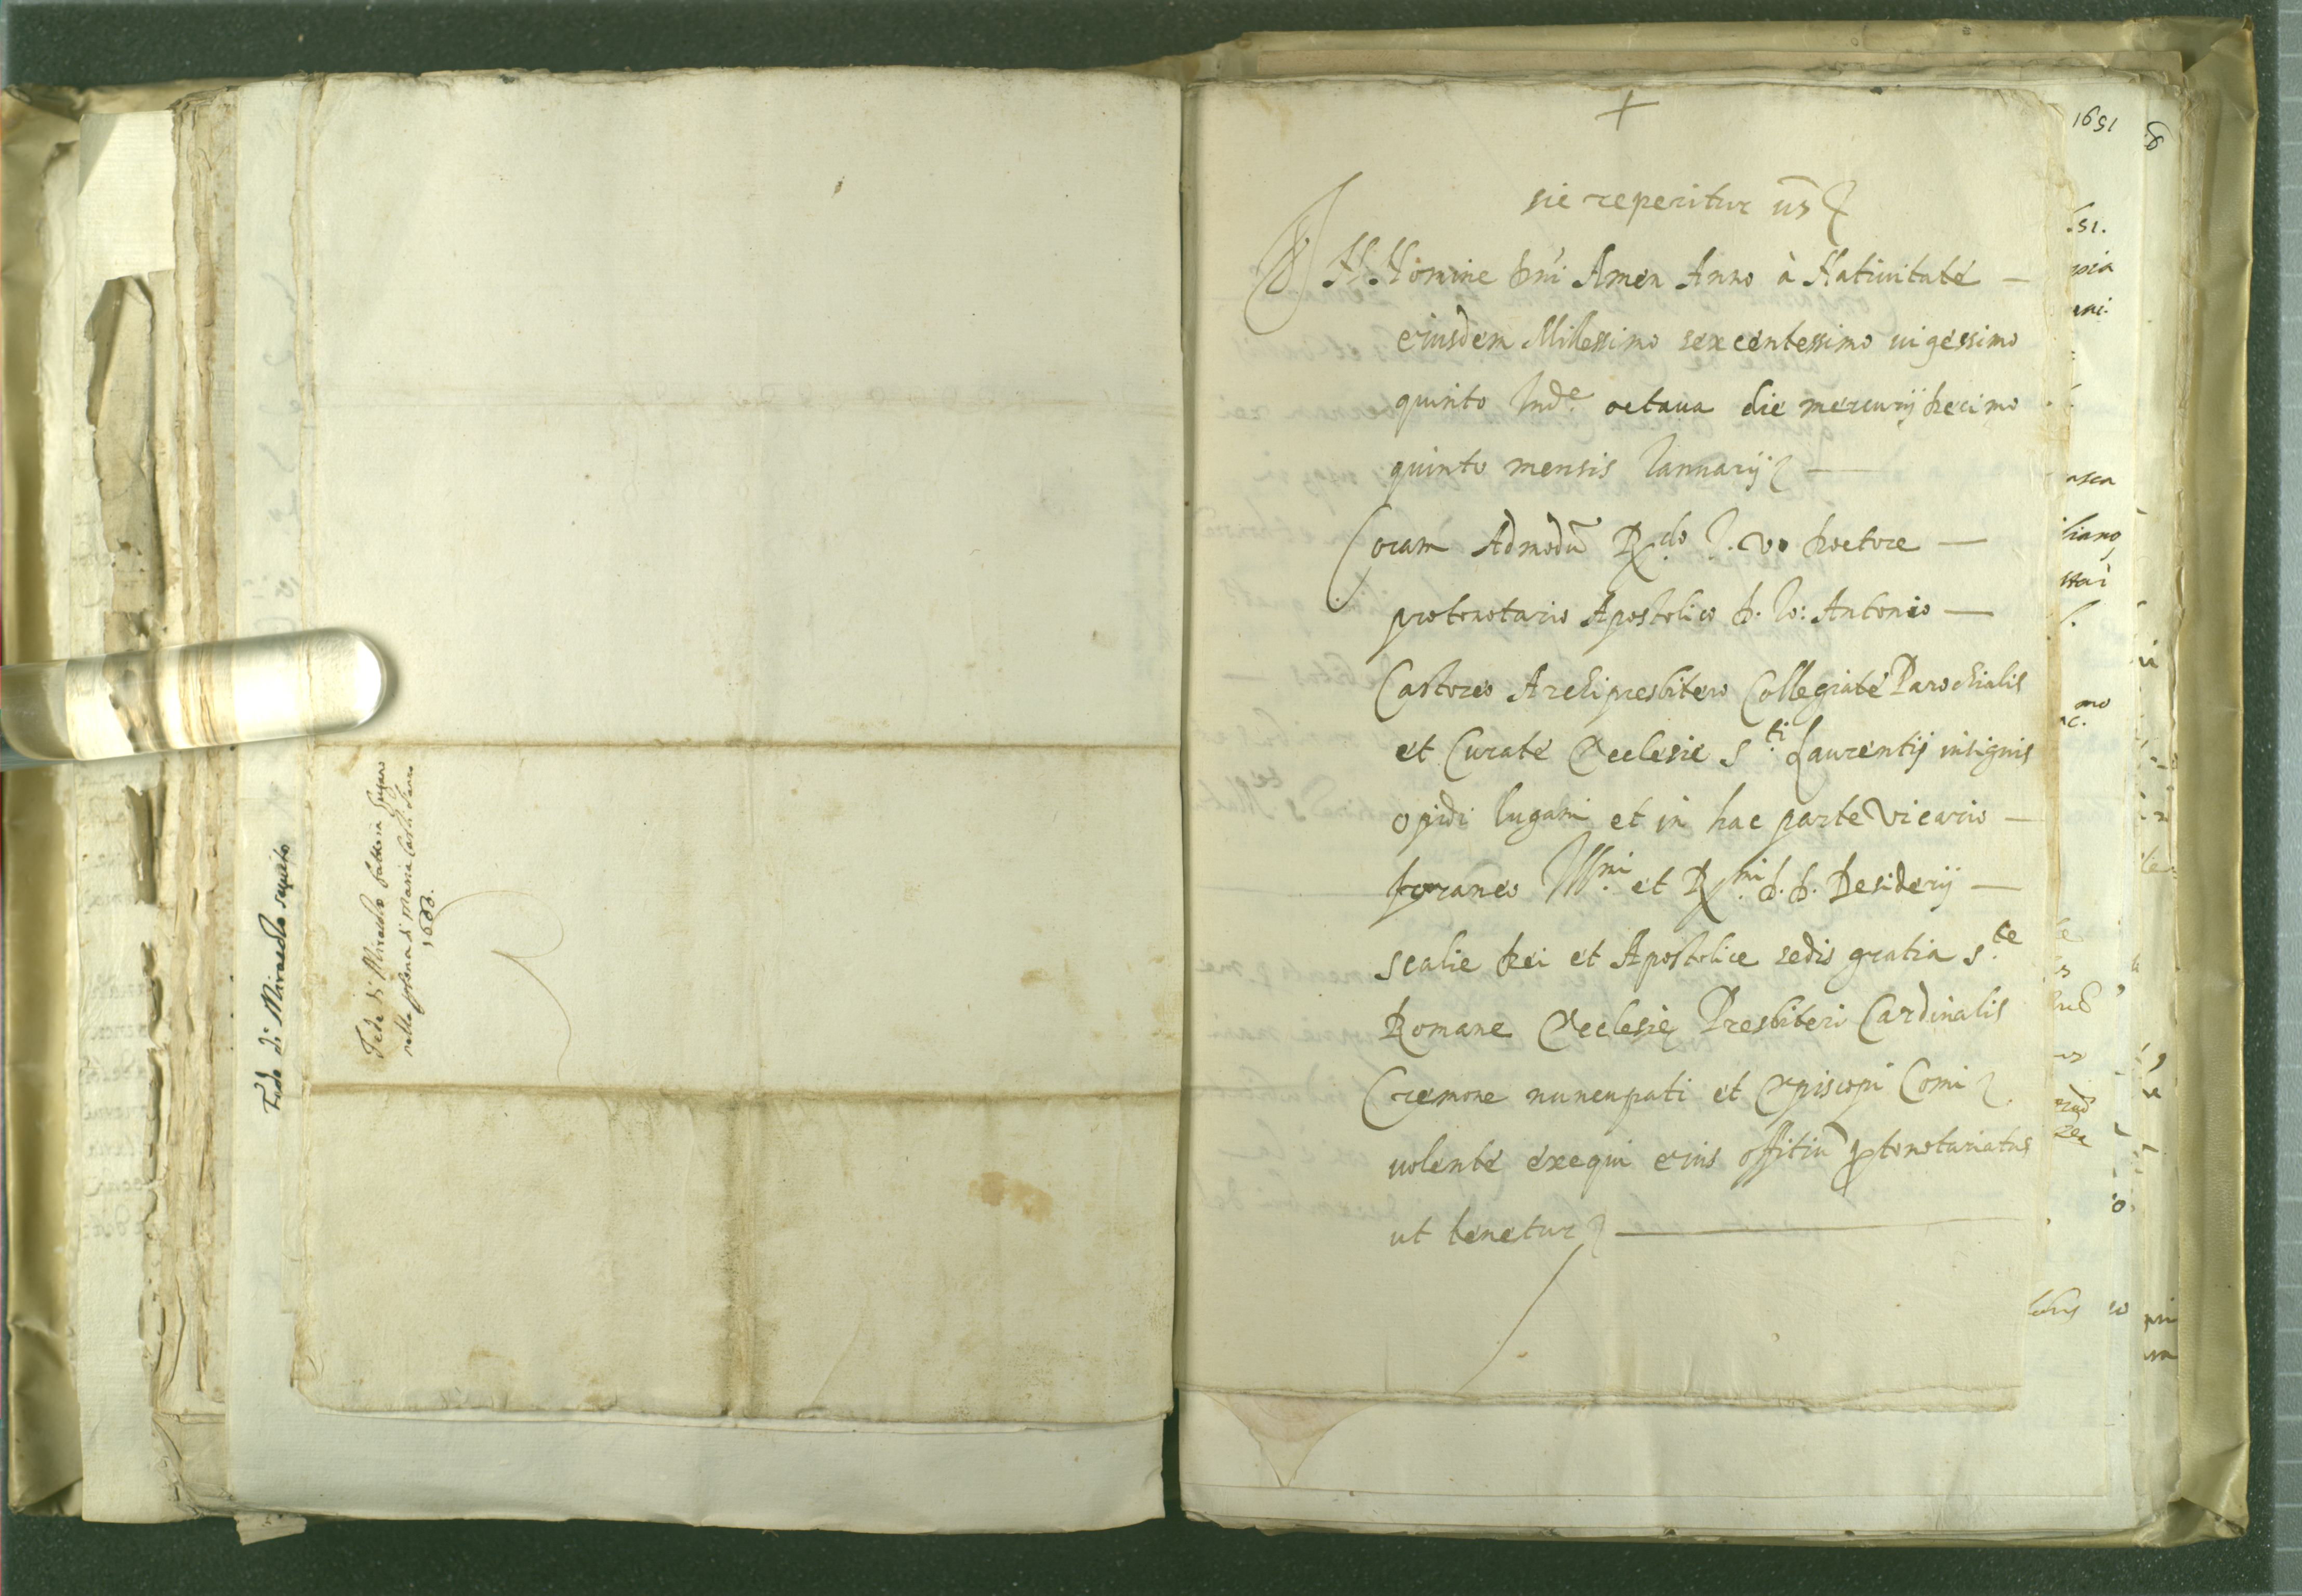 Fede di Miracolo seguito
Fede di Miracolo fatto in Lugano
nella persona di Maria Cast.
1600.
+
sic reperitur us
In Nomine Dni Amen Anno à Natiuitate —
eiusdem Millessimo sexcentessimo uigessimo
quinto Inde. octaua die mercurij decimo
quinto mensis Ianuarij —
Coram Admodũ Rdo J. V. Doctore —
protonotario Apostolico D. Io: Antonio —
Castoreo Archipresbitero Collegiate Parochialis
et Curate Ecclesie Sti Laurentij insignis
opidi lugani et in hac parte vicario —
foraneo Illmi et Rmi D. D. Desiderij —
scalie Dei et Apostolice sedis gratia Ste
Romane Ecclesie Presbiteri Cardinalis
Cremone nuncupati et Episcopi Comi
uolente exequi eius offitiũ ptonotariatus
ut tenetur
1651
8